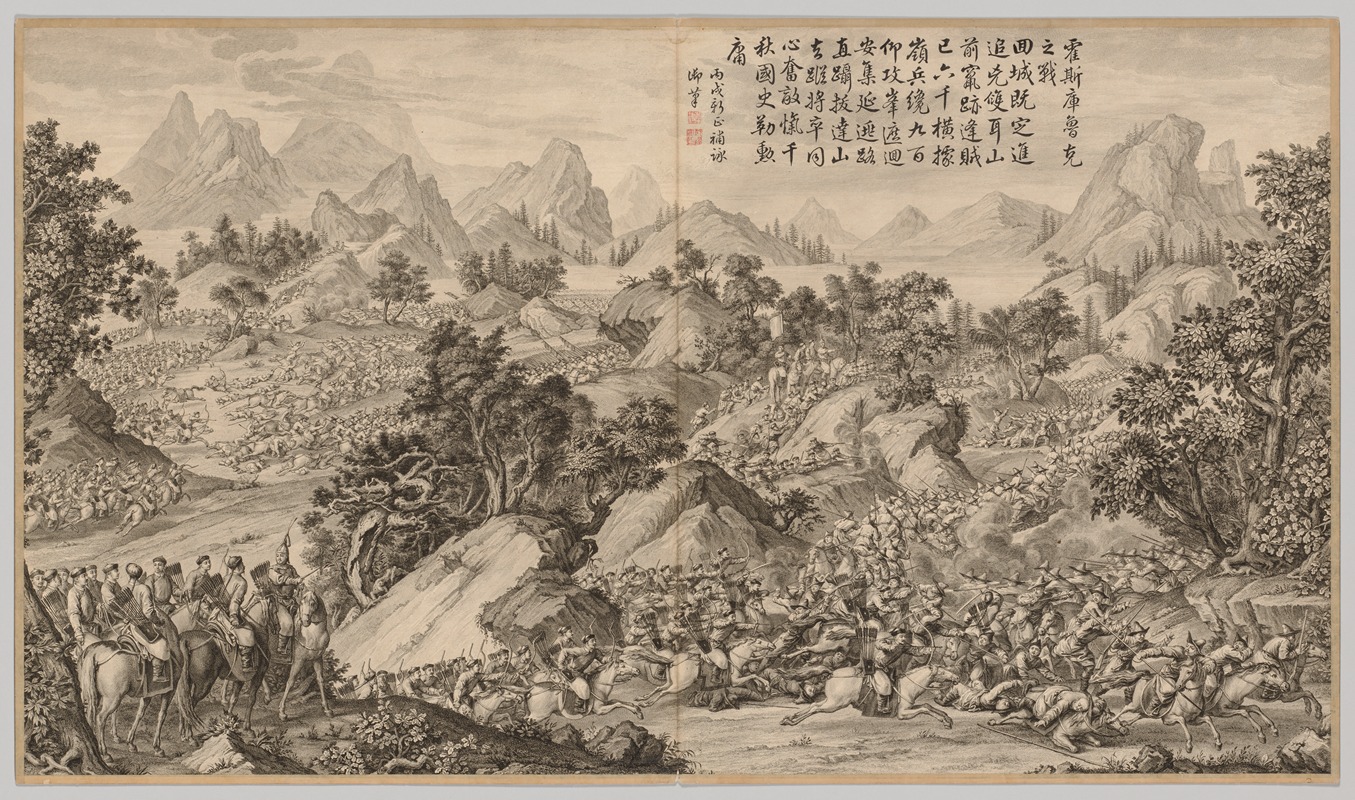 霍斯庫魯克
之戰
囬城既定進
追兇雙耳山
前竄跡逢賊
已六千橫據
嶺兵纔九百
仰攻峯遮迴
安集延路
直躡拔達山
去蹤將卒同
心奮敵愾千
秋國史勒勲
庸
丙戌新正補詠
御筆